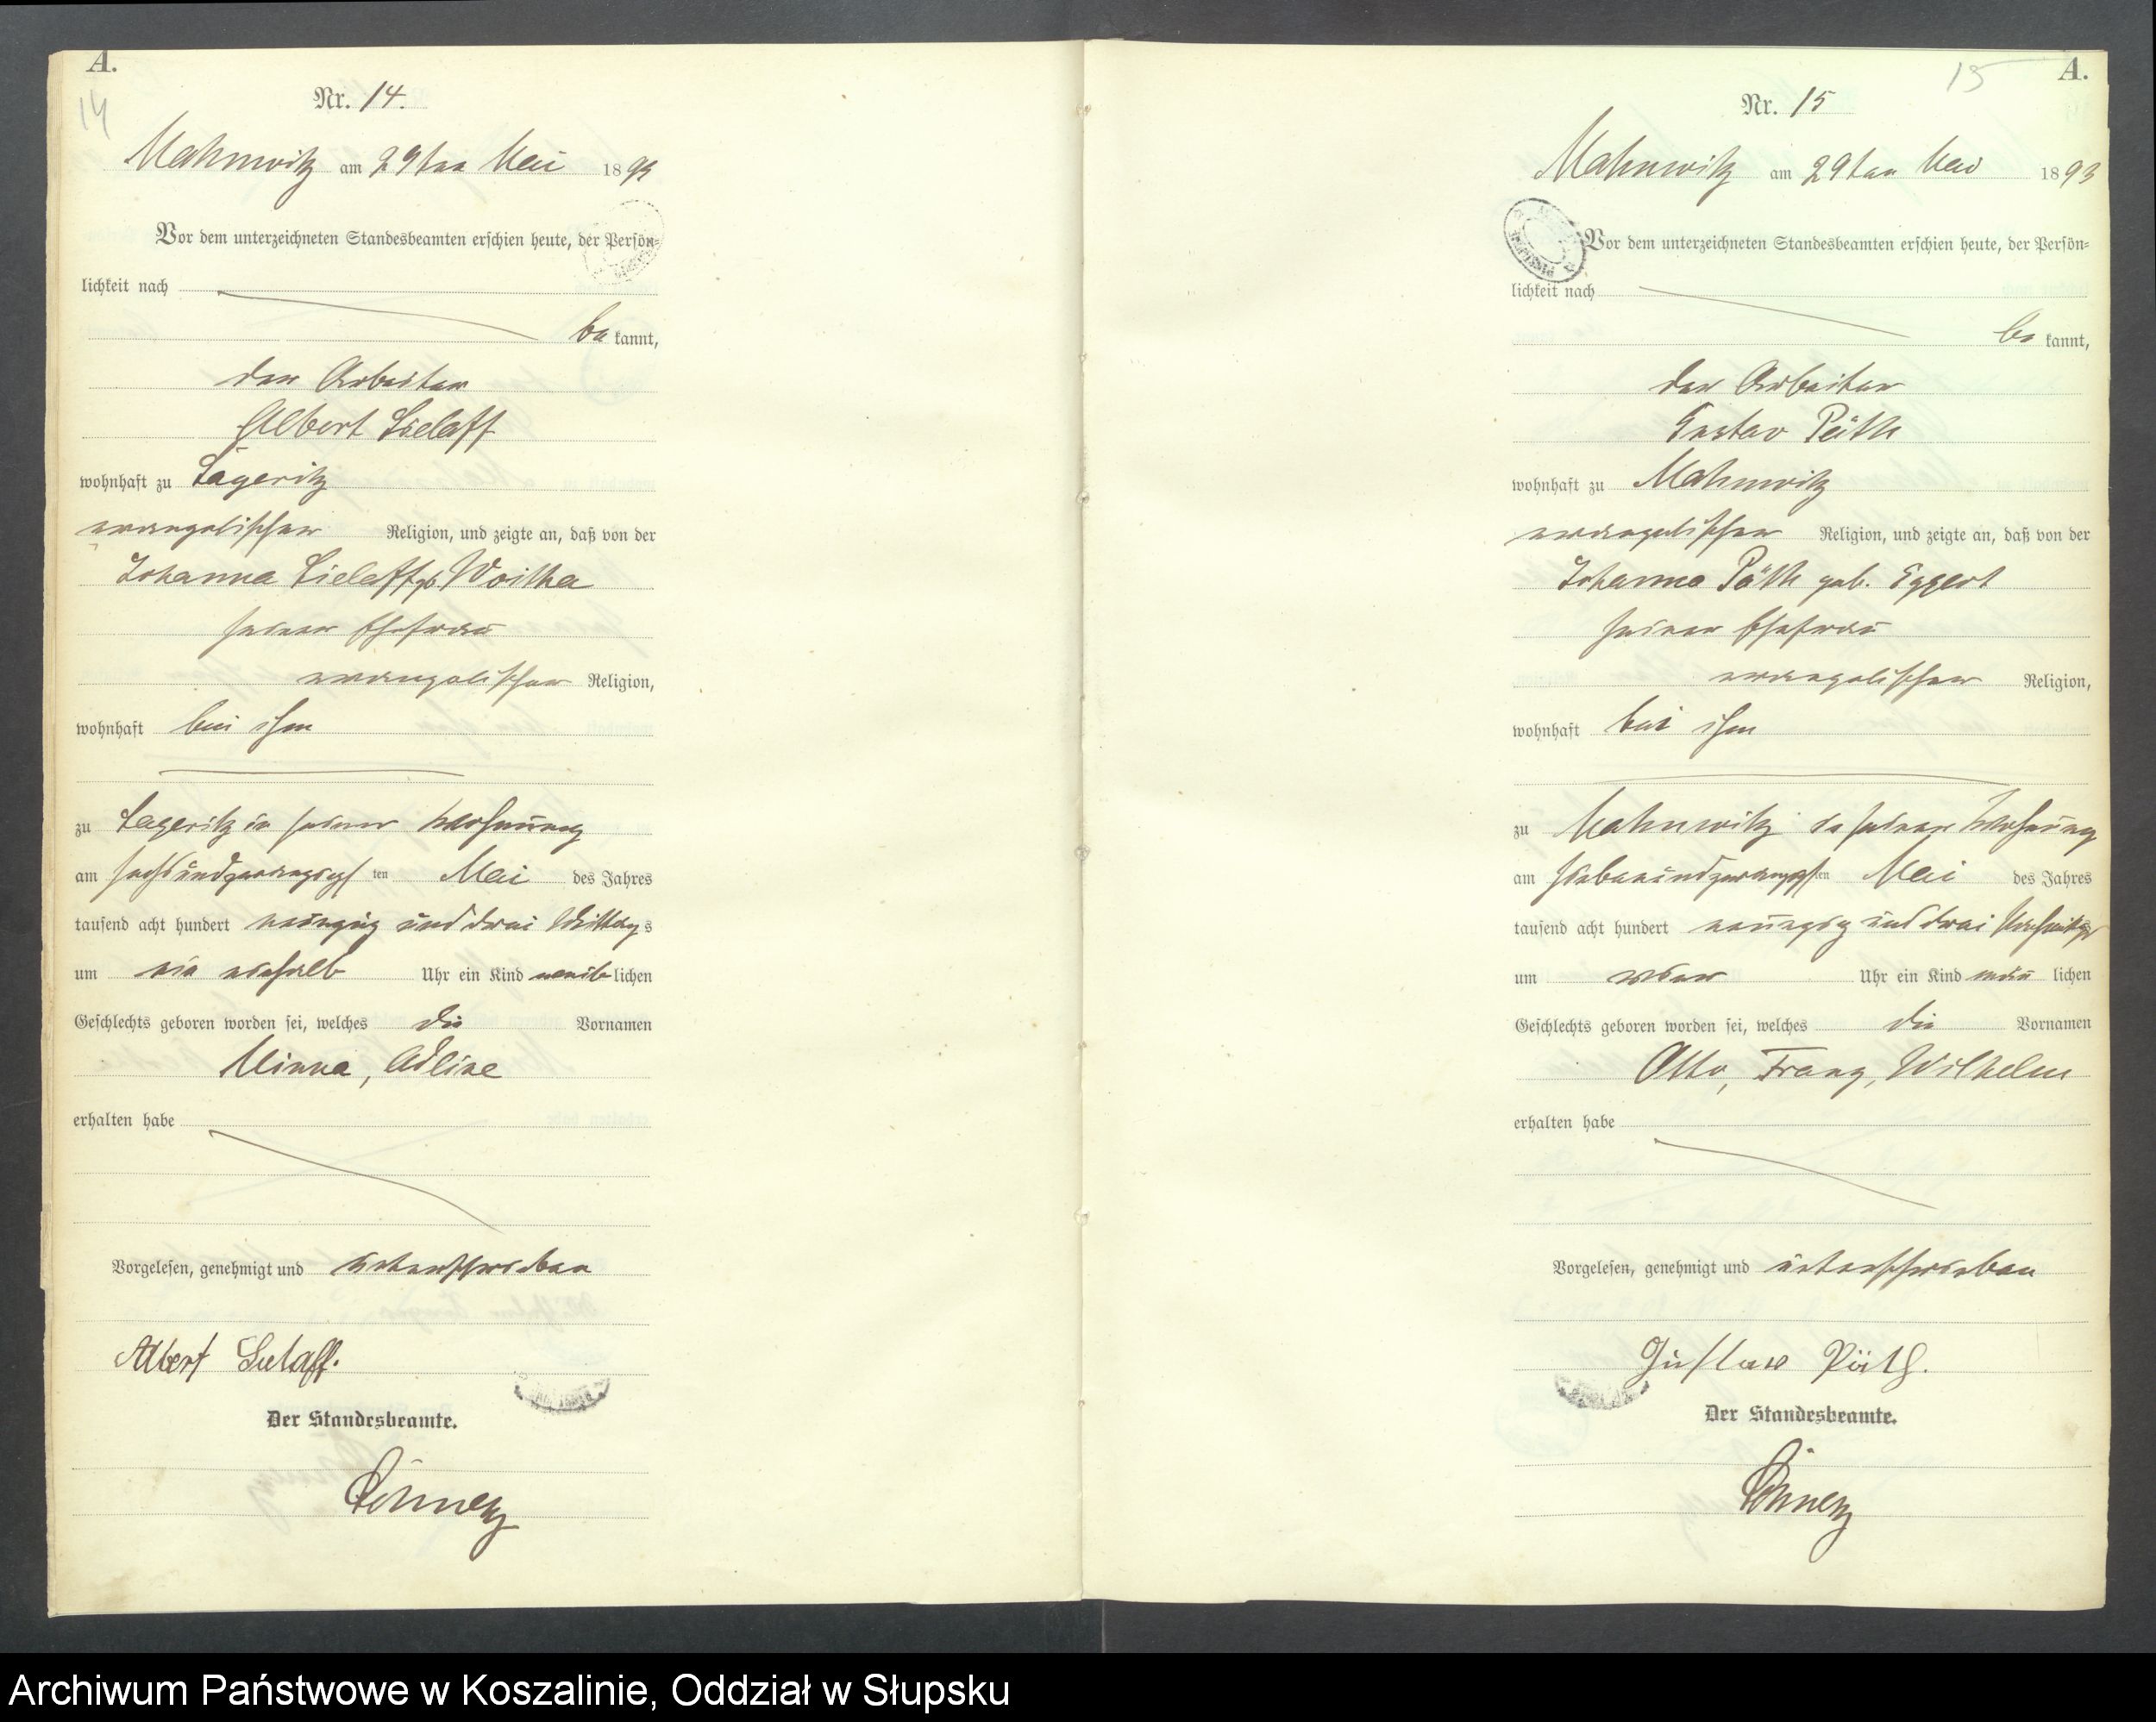 A.
14
Nr. 14.
Mahnwitz am 29ten Mai 1893
Vor dem unterzeichneten Standesbeamten erschien heute, der Persön-
lichkeit nach
bekannt,
der Arbeiter
Albert Lielaff
wohnhaft zu Lageritz
evangelischer Religion, und zeigte an, daß von der
Johanna Lielaff gb. Woitha
seiner Ehefrau
evangelischer Religion,
wohnhaft bei ihm
zu Lageritz in seiner Wohnung
am sechsundzwanzigsten Mai des Jahres
tausend acht hundert neunzig und drei Mittags
um ein einhalb Uhr ein Kind weiblichen
Geschlechts geboren worden sei, welches die Vornamen
Minna, Adline
erhalten habe
Vorgelesen, genehmigt und unterschrieben
Albert Lielaff.
Der Standesbeamte.
15
A.
Nr. 15
Mahnwitz am 29ten Mai 1893
Vor dem unterzeichneten Standesbeamten erschien heute, der Persön-
lichkeit nach
bekannt,
der Arbeiter
Gustav Päth
wohnhaft zu Mahnwitz
evangelischer Religion, und zeigte an, daß von der
Johanna Päth geb. Eggert
seiner Ehefrau
evangelischer Religion,
wohnhaft bei ihm
zu Mahnwitz in seiner Wohnung
am siebenundzwanzigsten Mai des Jahres
tausend acht hundert neunzig und drei Nachmittags
um vier Uhr ein Kind männlichen
Geschlechts geboren worden sei, welches die Vornamen
Otto, Franz, Wilhelm
erhalten habe
Vorgelesen, genehmigt und unterschrieben
Gustav Päth.
Der Standesbeamte.
Archiwum Państwowe w Koszalinie, Oddział w Słupsku